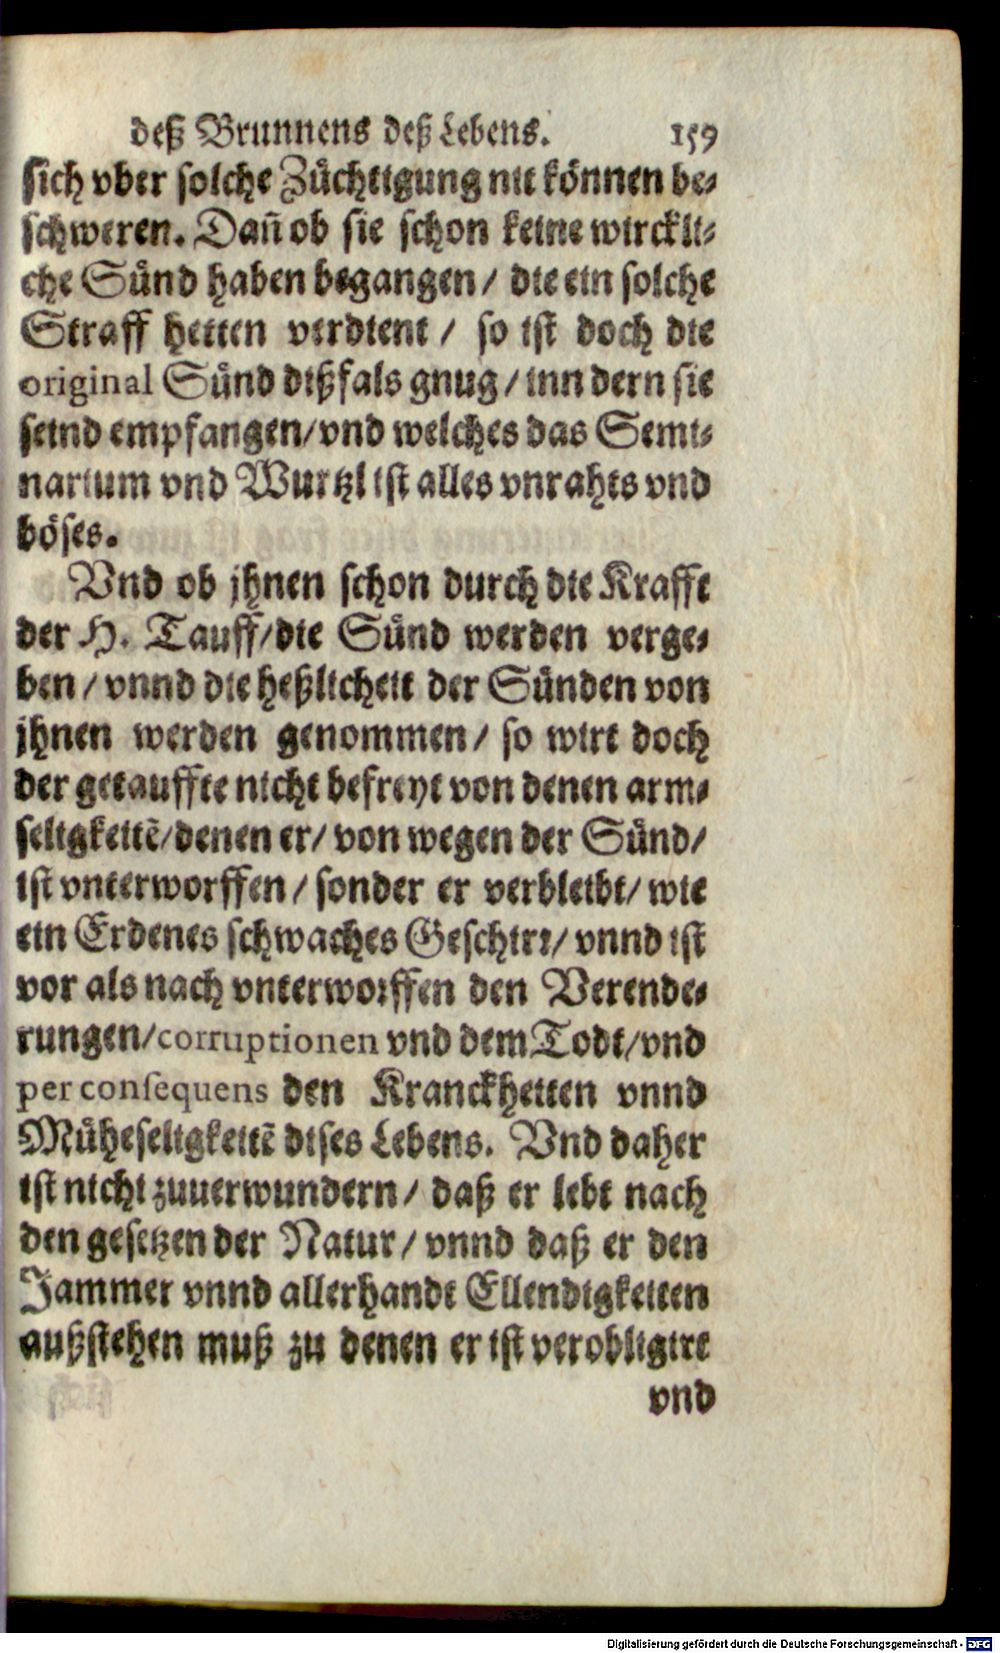 deß Brunnens deß Lebens. 159
sich vber solche Zůchtigung nit kőnnen be-
schweren. Dañ ob sie schon keine wirckli-
che Sůnd haben begangen / die ein solche
Straff hetten verdient / so ist doch die
original Sůnd dißfals gnug / inn dern sie
seind empfangen/vnd welches das Semi-
narium vnd Wurtzl ist alles vnrahts vnd
böses.
Vnd ob jhnen schon durch die Krafft
der H. Tauff/die Sůnd werden verge-
ben / vnnd die heßlicheit der Sůnden von
jhnen werden genommen / so wirt doch
der getauffte nicht befreyt von denen arm-
seligkeitẽ/denen er/ von wegen der Sůnd/
ist vnterworffen / sonder er verbleibt/ wie
ein Erdenes schwaches Geschirr/ vnnd ist
vor als nach vnterworffen den Verende-
rungen/corruptionen vnd dem Todt/vnd
per consequens den Kranckheiten vnnd
Můheseligkeitẽ dises Lebens. Vnd daher
ist nicht zuuerwundern / daß er lebt nach
den gesetzen der Natur / vnnd daß er den
Jammer vnnd allerhandt Ellendigkeiten
außstehen muß zu denen er ist verobligirt
vnd
Digitalisierung gefördert durch die Deutsche Forschungsgemeinschaft - DFG